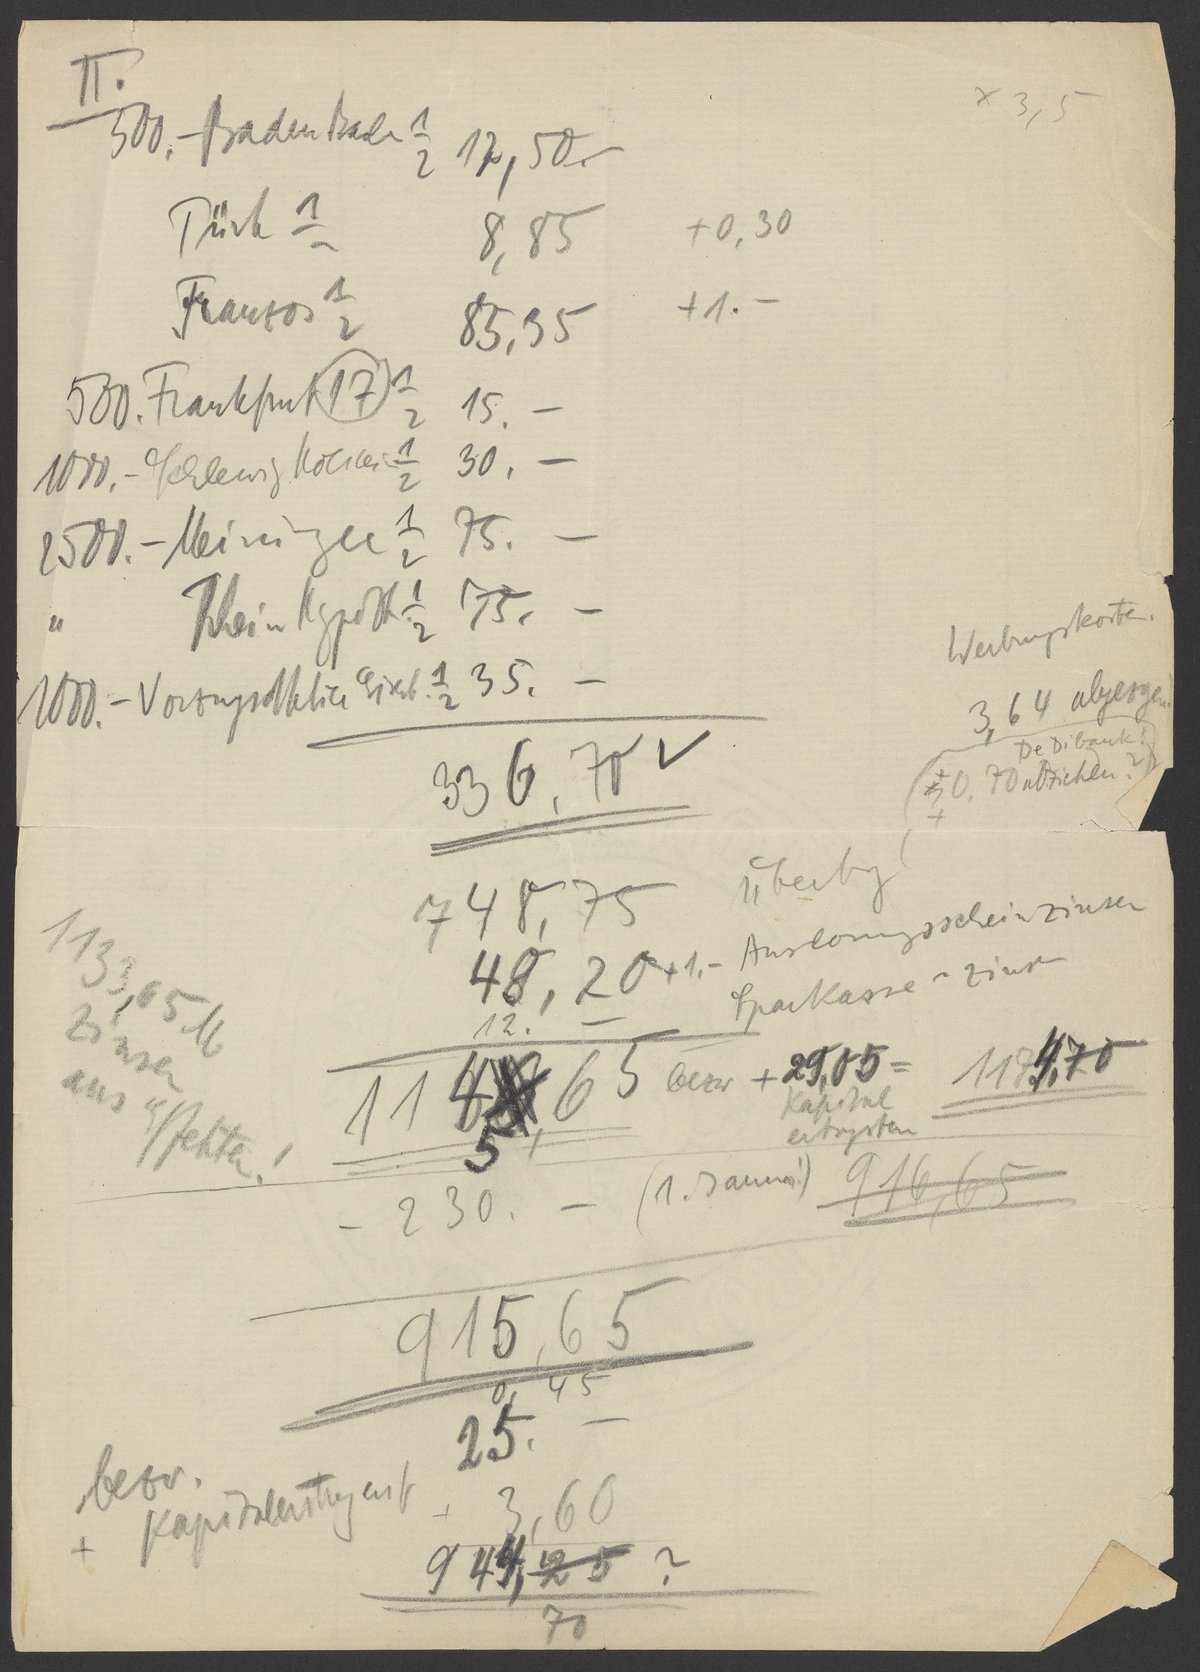 II.
× 3,5
500.- Baden Bad 1/2 12,50.-
Türk 1/2 8,85 +0,30
Franzos 1/2 85,35 +1.-
500. Frankfurt 17 1/2 15.-
1000.- Schleswig Holstein 1/2 30.-
2500.- Meininger 1/2 75.-
" Rhein Hypoth. 1/2 75.-
1000.- Vorzugsaktie 1/2 35.-
336,70 ✓
Werbungskosten.
3,64 abgezogen
DeDibank!
0,70 abziehen?
748,75 Übertrg!
48,20 +1.- Auslosungsscheinzinsen
12.- Sparkasse-zinsen
1133,65 M
Zinsen
aus Effekten!
1145,65 bezw + 29,05 = 1174,70
Kapital
ertrgsten
- 230.- (1. Januar!) 916,65
915,65
0,45
25.-
bezw.
+ Kapitalertrgsst + 3,60
944,25 ?
70